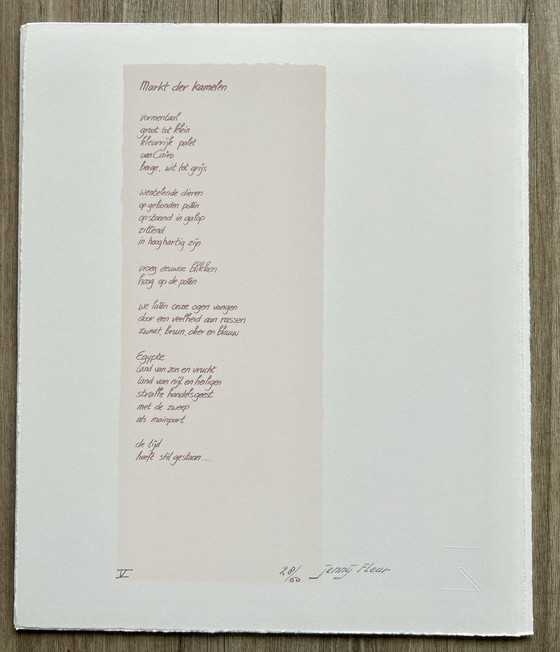 Markt der kamelen
vormentaal
groot tot klein
kleurrijk palet
van Cairo
beige, wit tot grijs
wentelende dieren
opgebonden poten
opstaand in galop
zittend
in hooghartig zijn
vroeg eeuwse blikken
hoog op de poten
we laten onze ogen vangen
door een veelheid aan rassen
zwart, bruin, oker en blauw
Egypte
land van zon en vrucht
land van nijl en heiligen
straffe handelsgeest
met de zweep
als mainpart
de tijd
heeft stil gestaan.....
V
28/60 Jenny Fleur